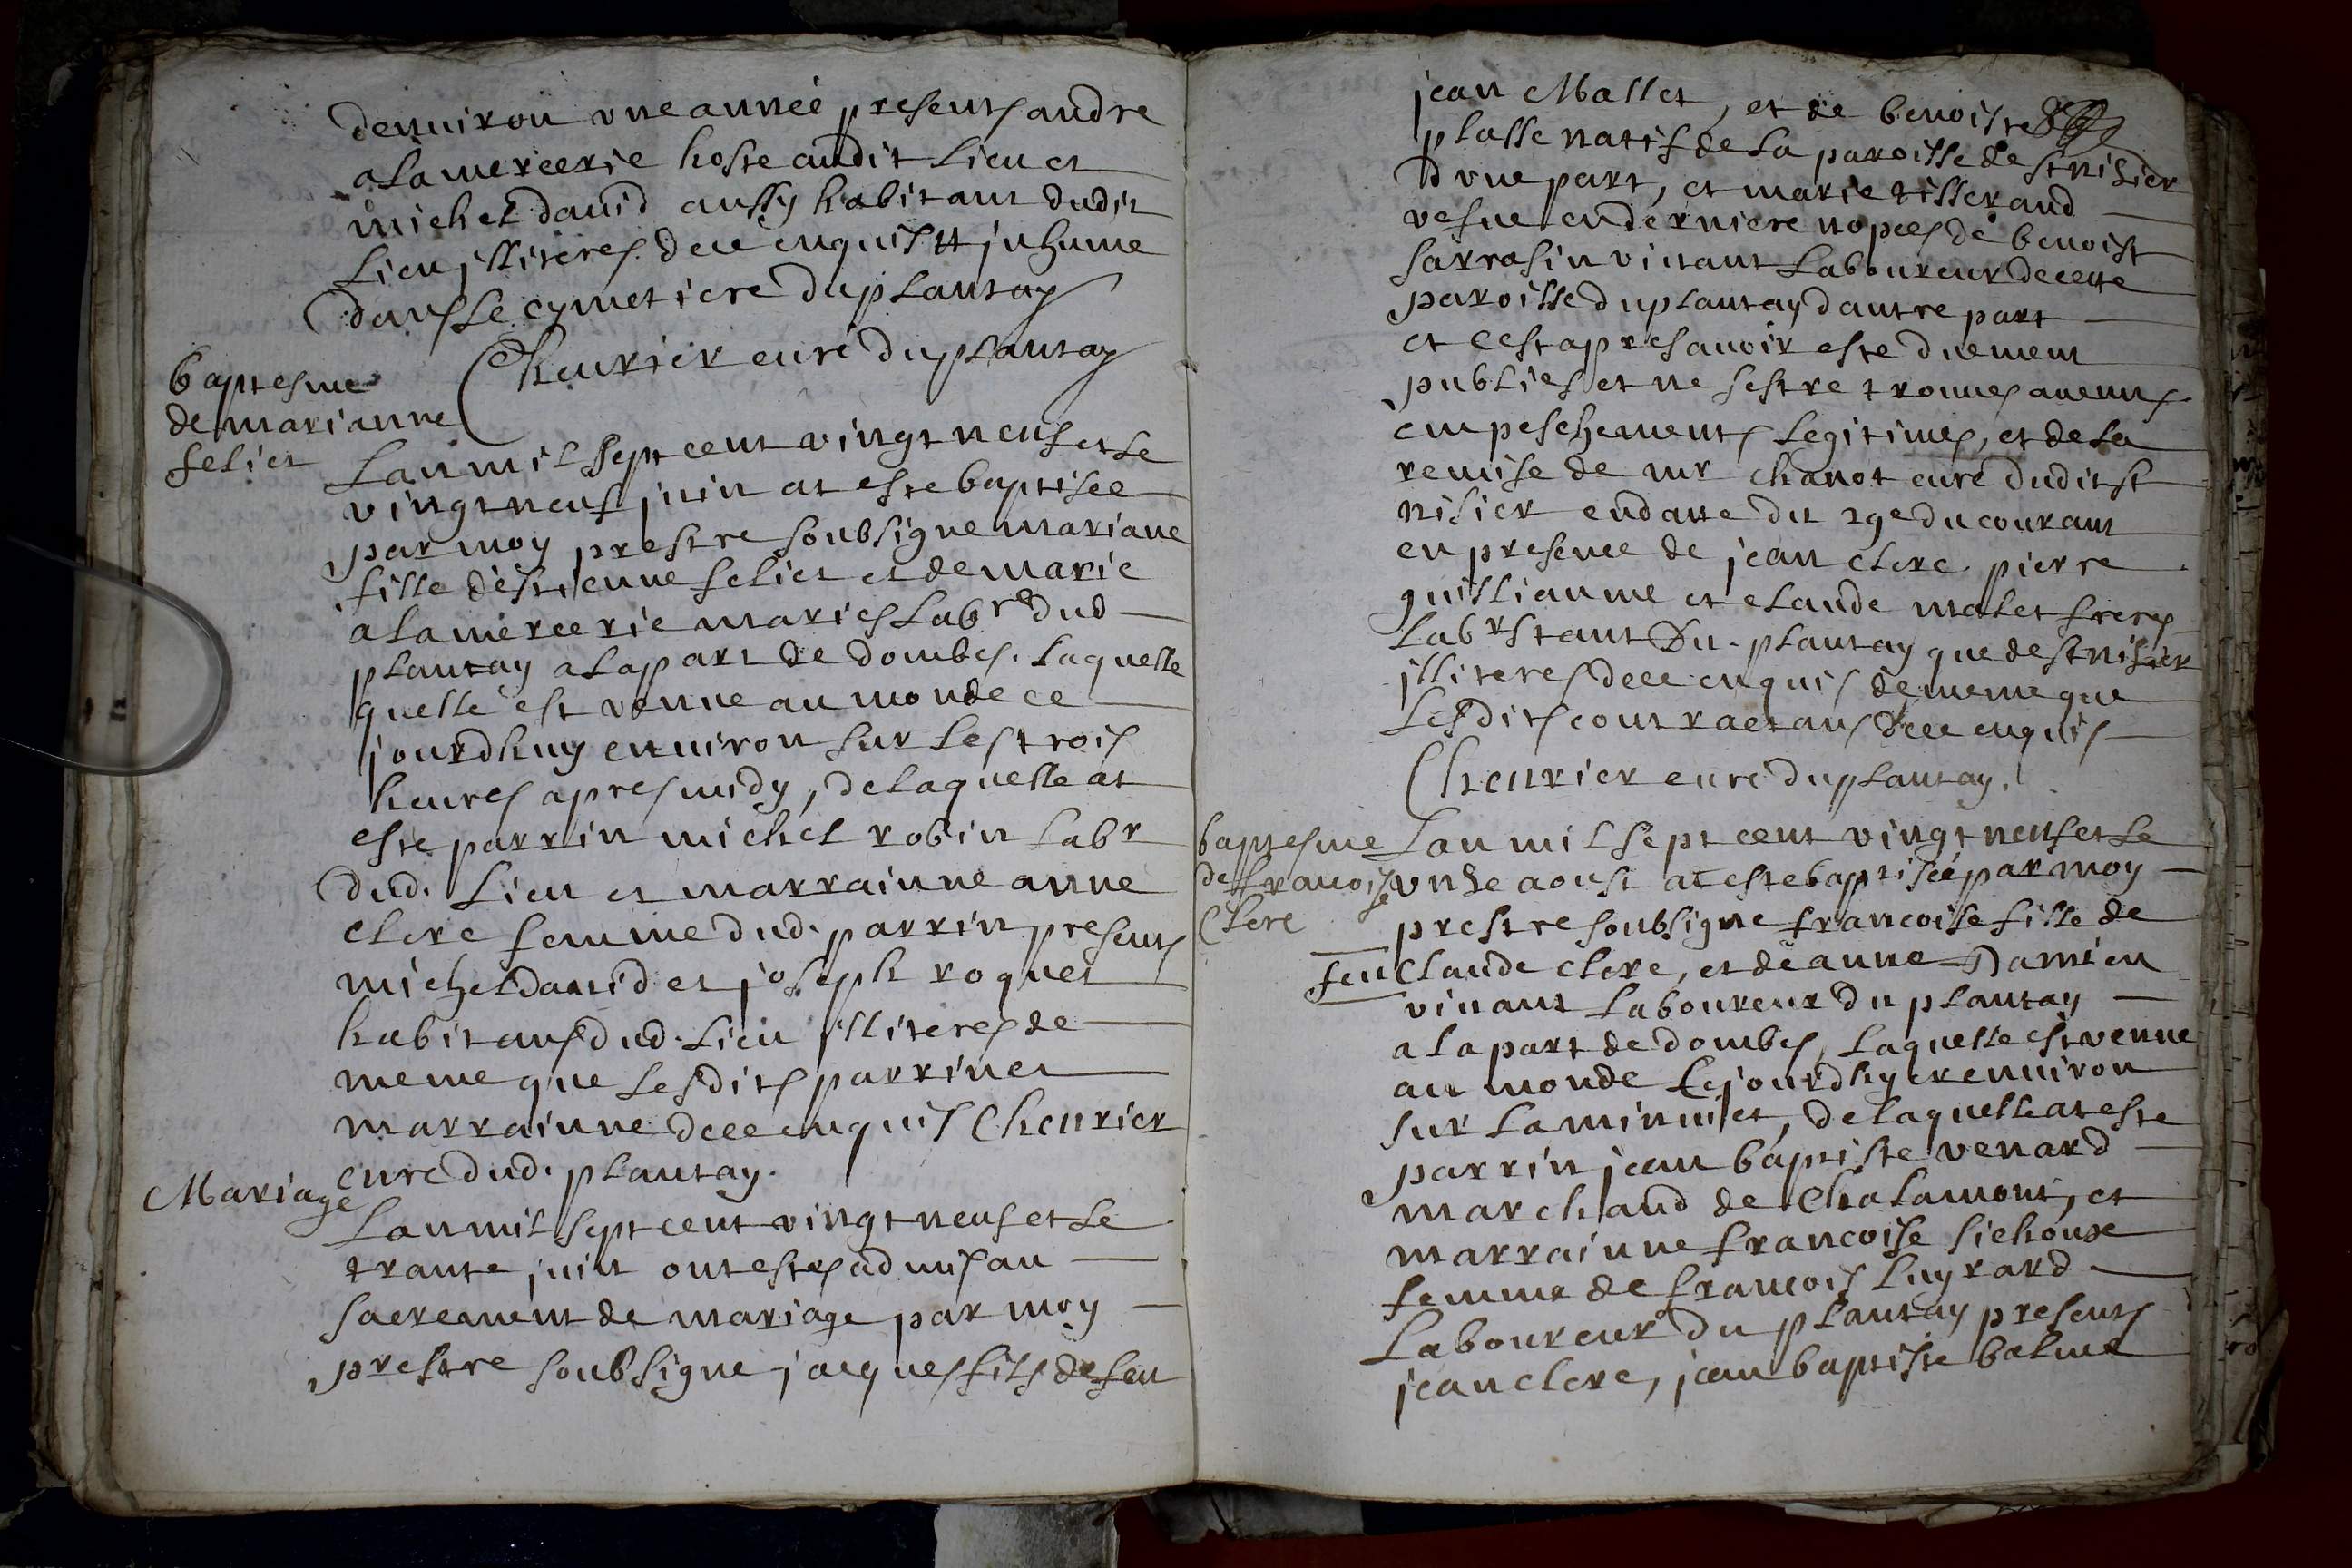 denuiron une année presents andre
alamercerie hoste audit lieu et
michel dauid aussy habitant dudit
lieu illiteres de ce enquis et inhume
dans le cymetiere du plantay
Cheurier curé du plantay
baptesme
de marianne
feliet
Lan mil sept cent vingt neuf et le
vingt neuf juin at esté baptisée
par moy prestre soubsigne mariane
fille d'estienne feliet et de marie
alamercerie maries labrs dud
plantay a la part de dombes. laquelle
quelle est venue au monde ce
jourdhuy enuiron sur les trois
heures apres midy, de laquelle at
este parrin michel robin labr
dud. lieu et marrainne anne
clere femme dud. parrin presents
michel dauid et joseph roquet
habitans dud. lieu illiteres de
meme que lesdits parrin et
marrainne de ce enquis Cheurier
curé dud. plantay.
Mariage
Lan mil sept cent vingt neuf et le
trante juin ont estes admis au
sacrement de mariage par moy
prestre soubsigne jacques fils de feu
jean Mallet, et de benoiste
plasse natif de la paroisse de st nisier
d'une part, et marie tisserand
vefue en derniere nopces de benoist
sarrasin viuant laboureur de cette
paroisse du plantay dautre part
et cest apres auoir este duement
publies et ne sestre trouues aucuns
empeschements legitimes, et de la
remise de mr chanot curé dudit st
nisier en datte du 29e du courant
en presence de jean clere. pierre
guilliaume et claude malet freres
labrs tant du plantay que de st nisier
illiteres de ce enquis de meme que
lesdits contractans de ce enquis
Cheurier curé du plantay.
baptesme
de francoise
Clere
Lan mil sept cent vingt neuf et le
unze aoust at este baptisée par moy
prestre soubsigne francoise fille de
feu Claude clere, et de anne Damien
viuant laboureur du plantay
a la part de dombes, laquelle est venue
au monde ce jourdhy enuiron
sur la minuiet, de laquelle at este
parrin jean baptiste venard
marchand de Chalamont, et
marrainne francoise sichoux
femme de francois luyrard
laboureur du plantay presents
jean clere, jean baptiste balme